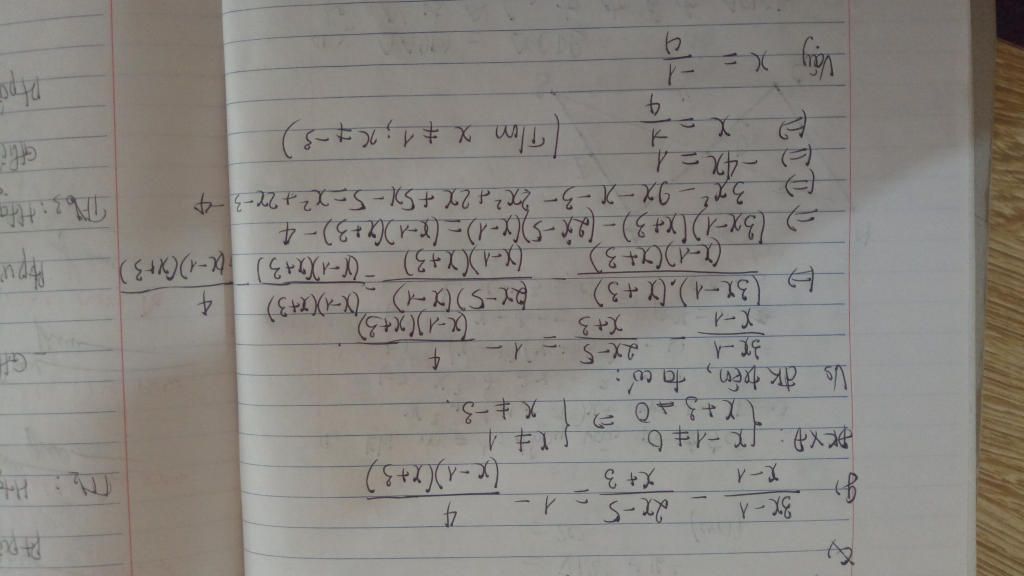 g) (3x-1)/(x-1) - (2x-5)/(x+3) = 1 - 4/((x-1)(x+3))
ĐKXĐ: { x-1 ≠ 0 ; x+3 ≠ 0 => { x ≠ 1 ; x ≠ -3.
Vs đk trên, ta có:
(3x-1)/(x-1) - (2x-5)/(x+3) = 1 - 4/((x-1)(x+3)).
(=) ((3x-1).(x+3))/((x-1)(x+3)) - ((2x-5)(x-1))/((x-1)(x+3)) = ((x-1)(x+3))/((x-1)(x+3)) - 4/((x-1)(x+3))
=) (3x-1)(x+3) - (2x-5)(x-1) = (x-1)(x+3) - 4
(=) 3x² - 9x - x - 3 - 2x² + 2x + 5x - 5 = x² + 2x - 3 - 4
(=) -4x = 1
(=) x = -1/4 (T/m x ≠ 1; x ≠ -3)
Vậy x = -1/4